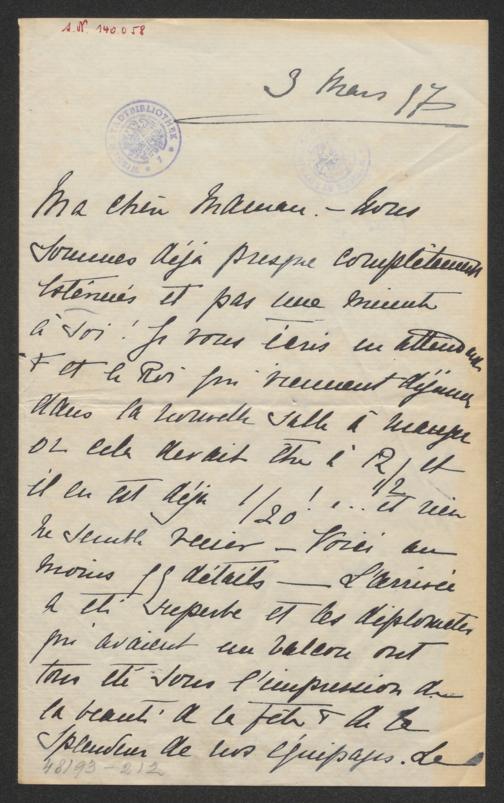 A.N. 140.058
3 Mars 97
WIENER STADTBIBLIOTHEK
Ma chère Maman. - Nous
sommes déjà presque complètement
exténués et pas une minute
à soi! Je vous écris en attendant
F et le Roi qui viennent déjeuner
dans la nouvelle salle à manger
or cela devait être à 12 1/2 et
il en est déjà 1/20! ... et rien
ne semble venir - Voici au
moins qq détails — L'arrivée
a été superbe et les diplomates
qui avaient un balcon ont
tous été sous l'impression de
la beauté de la fête & de la
splendeur de nos équipages. Le
48193-212